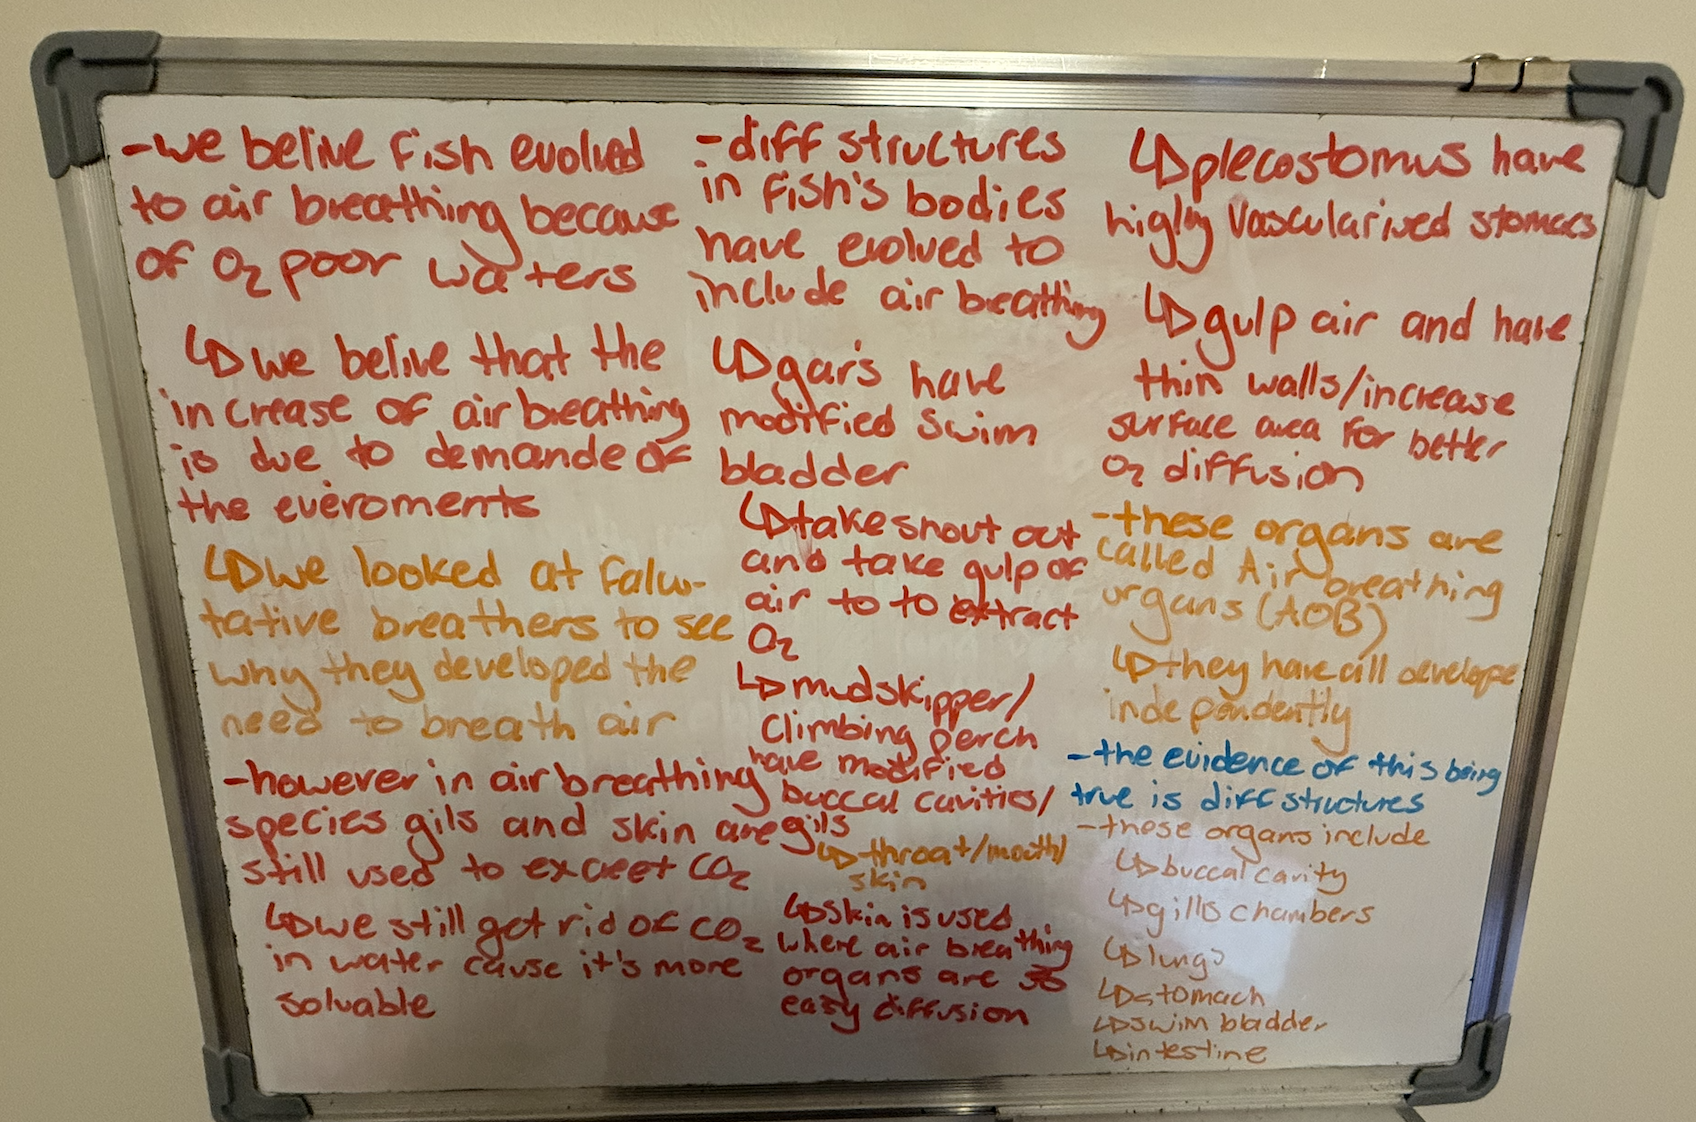 -we belive fish evolved
to air breathing because
of O2 poor waters
↳we belive that the
increase of air breathing
is due to demande of
the everoments
↳we looked at falw-
tative breathers to see
why they developed the
need to breath air
-however in air breathing
species gils and skin are
still used to excreet CO2
↳we still get rid of CO2
in water cause it's more
soluable
-diff structures
in fish's bodies
have evolved to
include air breathing
↳gar's have
modified swim
bladder
↳take snout out
and take gulp of
air to to extract
O2
↳mudskipper/
climbing perch
have modified
buccal cavities/
gills
↳throat/mouth/
skin
↳skin is used
where air breathing
organs are so
easy diffusion
↳plecostomus have
highly vascularised stomacs
↳gulp air and have
thin walls/increase
surface area for better
O2 diffusion
-these organs are
called Air breathing
organs (AOB)
↳they have all develope
independently
-the evidence of this being
true is diff structures
-these organs include
↳buccal cavity
↳gills chambers
↳lungs
↳stomach
↳swim bladder
↳intestine